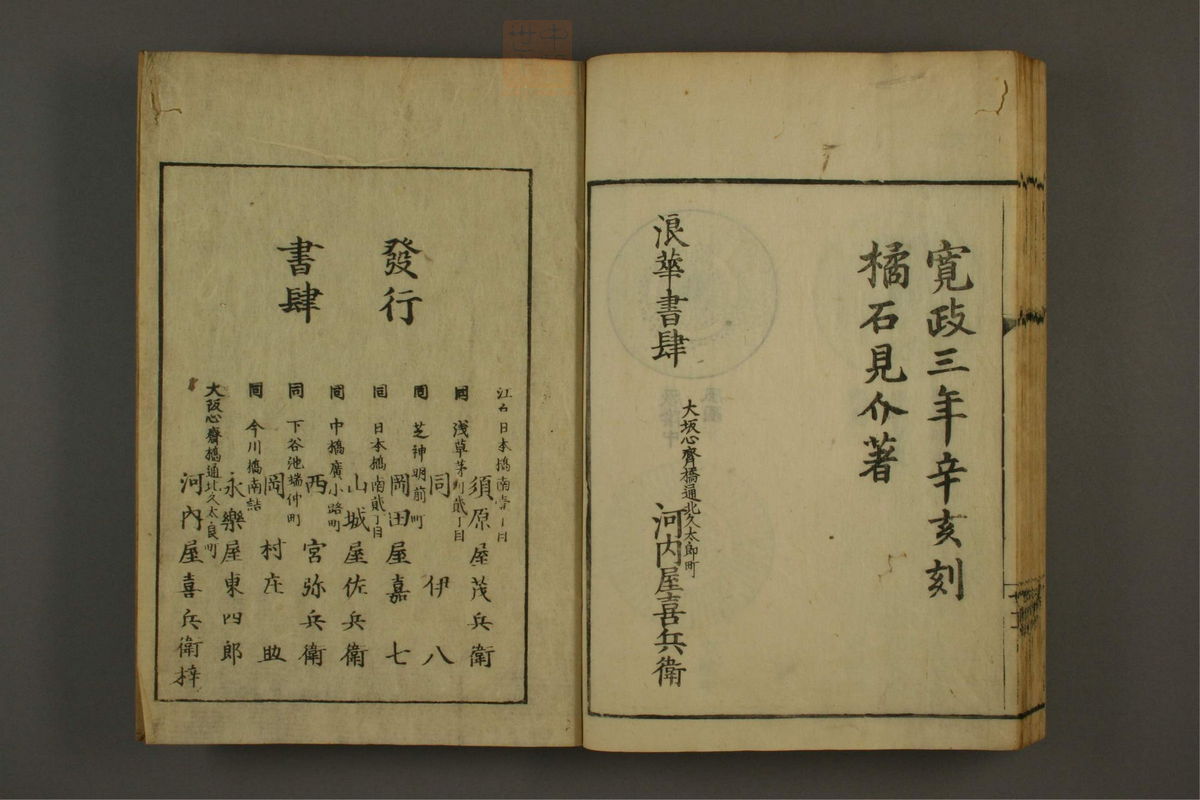 寛政三年辛亥刻
橘石見介著
浪華書肆
大坂心齋橋通北久太郎町
河内屋喜兵衛
發行
書肆
江戸日本橋南壹丁目
須原屋茂兵衛
同 浅草茅町貳丁目
同 伊八
同 芝神明前町
岡田屋嘉七
同 日本橋南貳丁目
山城屋佐兵衛
同 中橋廣小路町
西宮弥兵衛
同 下谷池端仲町
岡村庄助
同 今川橋南詰
永樂屋東四郎
大阪心齋橋通北久太良町
河内屋喜兵衛梓